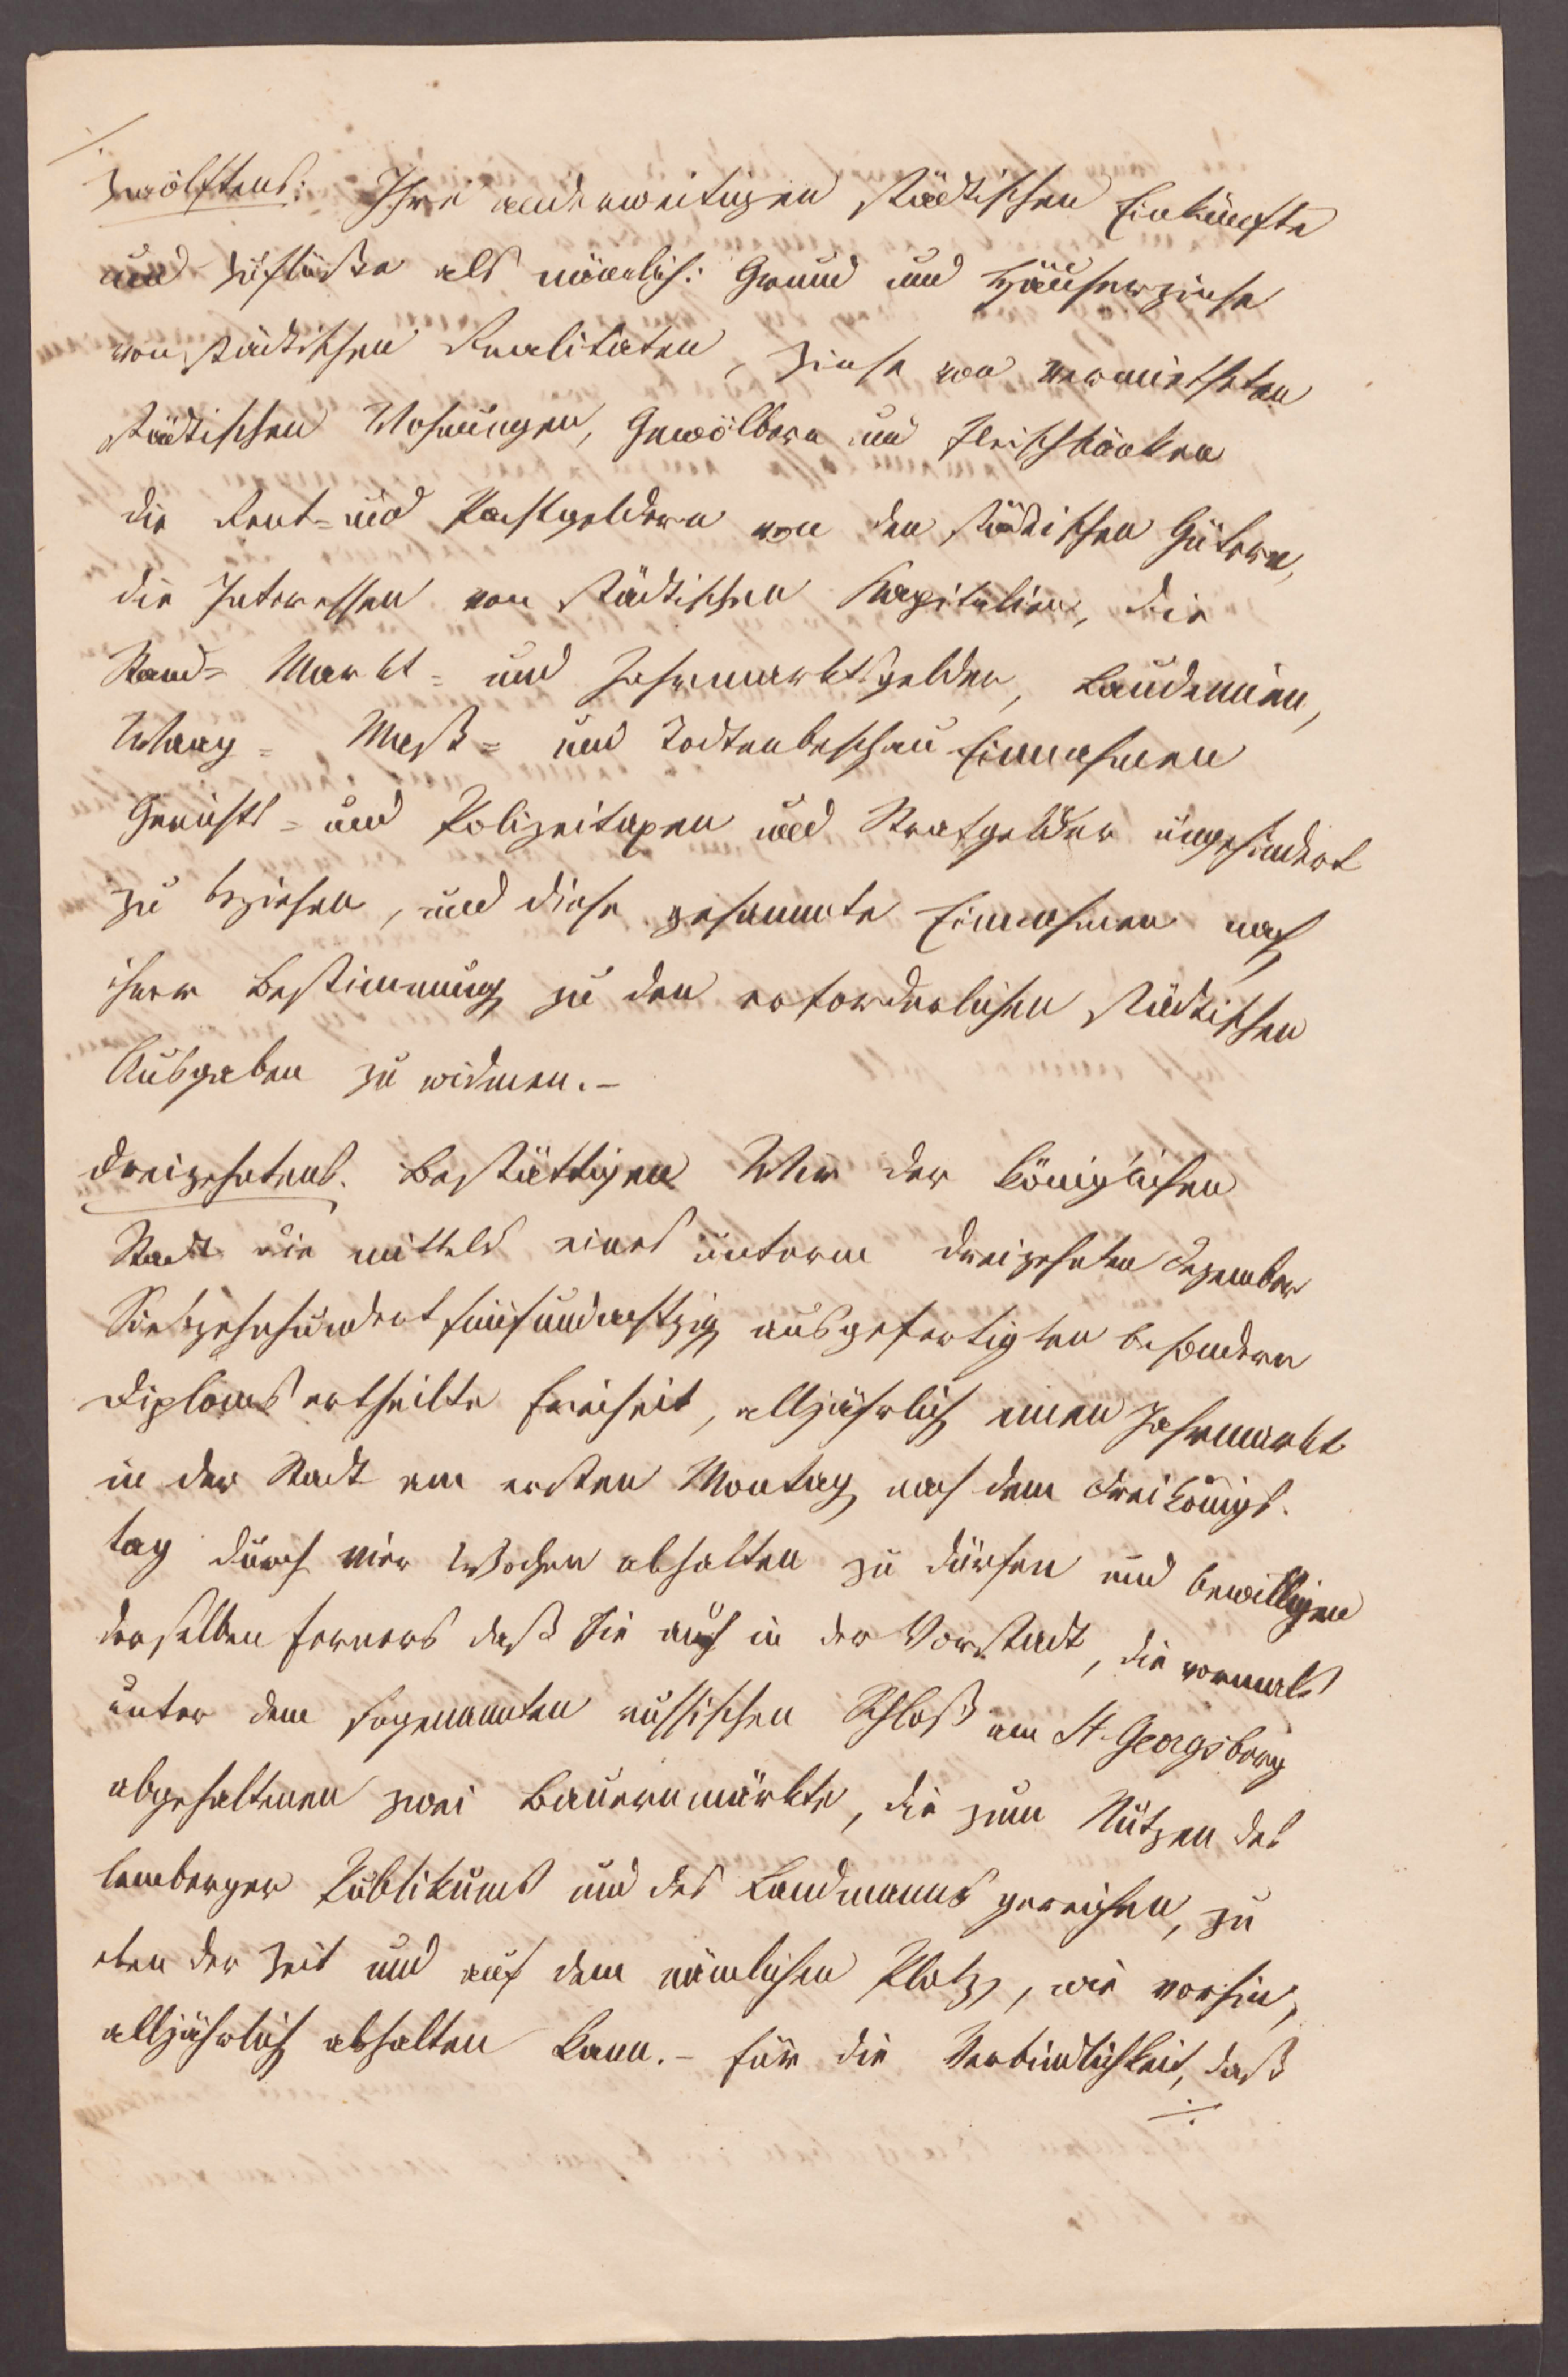 ./.
Zwölftens: Ihre anderweitigen städtischen Einkünfte
und Zuflüße als nämlich: Grund und Häuserzinse
von städtischen Realitäten, Zinse von vermietheten
städtischen Wohnungen, Gewölbern und Fleischbänken
die Rent= und Pachtgeldern von den städtischen Gütern,
die Interessen von städtischen Kapitalien, die
Stand= Markt= und Jahrmarktsgelder, Laudemien,
Waag= Maß= und Todtenbeschau Einnahmen
Gerichts= und Polizeitaxen und Strafgelder ungehindert
zu beziehen, und diese gesammte Einnahmen nach
ihrer Bestimmung zu den erforderlichen städtischen
Ausgaben zu widmen. –
Dreizehntens. Bestättigen Wir der königlichen
Stadt die mittels eines unterm dreizehnten Dezember
Siebzehnhundert fünfundachtzig ausgefertigten besondern
Diploms ertheilte Freiheit, alljährlich einen Jahrmarkt
in der Stadt am ersten Montag nach dem Dreikönigs-
tag durch vier Wochen abhalten zu dürfen und bewilligen
derselben ferners daß Sie auch in der Vorstadt, die vormals
unter dem sogenannten russischen Schloß am St. Georgsberg
abgehaltenen zwei Bauernmärkte, die zum Nutzen des
lemberger Publikums und des Landmanns gereichen, zu
eben der Zeit und auf dem nämlichen Platz, wie vorhin,
alljährlich abhalten kann. – Für die Verbindlichkeit, daß
./.